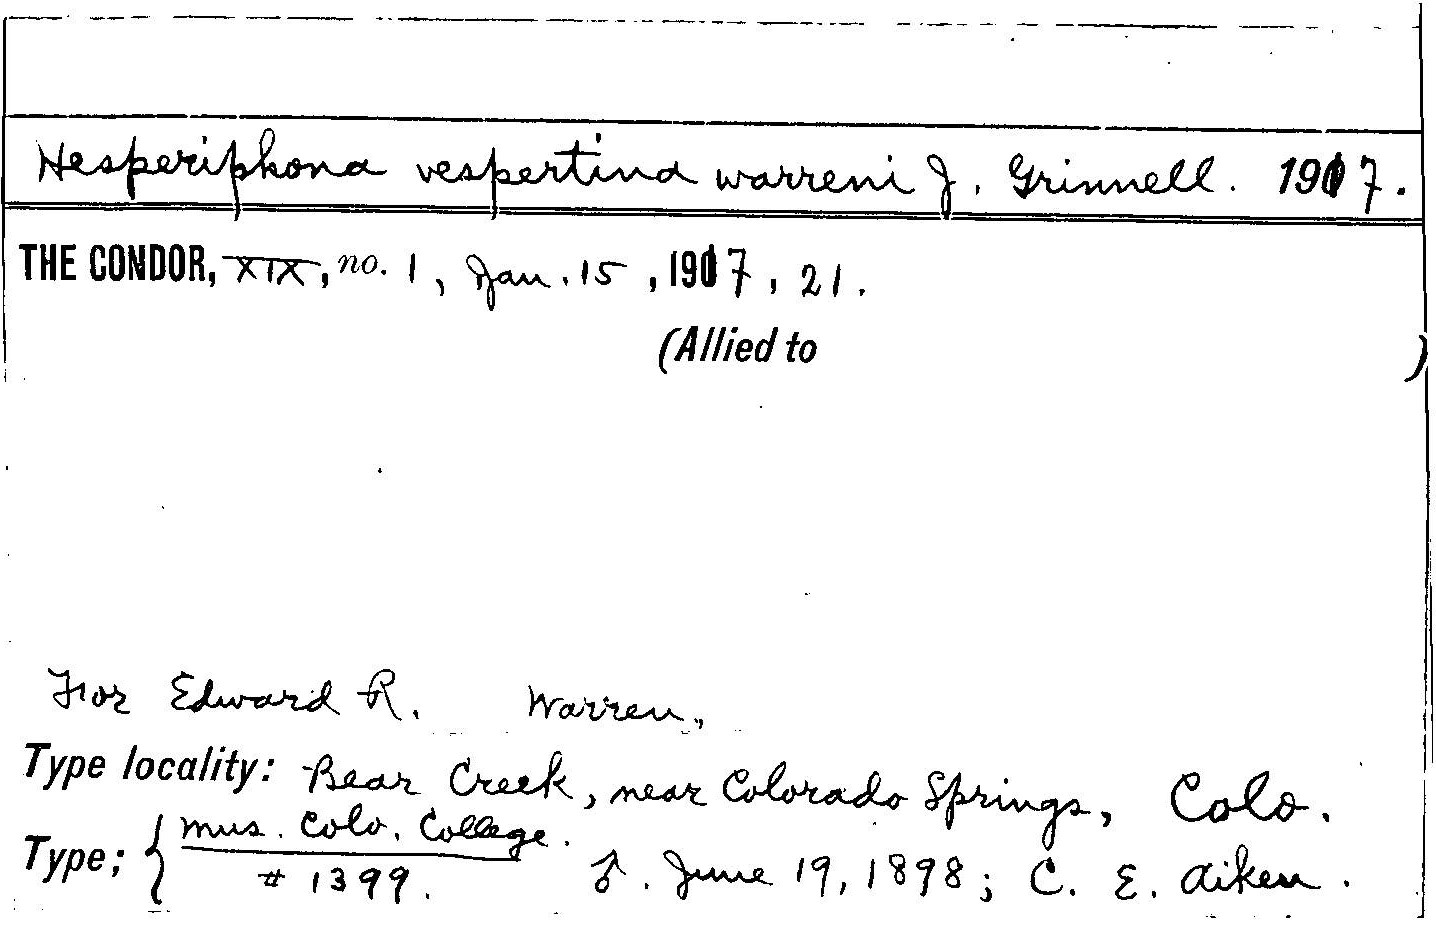 Hesperiphona vespertina warreni J. Grinnell. 1917.
THE CONDOR, XIX, no. 1, Jan. 15, 1917, 21.
(Allied to )
For Edward R. Warren.
Type locality: Bear Creek, near Colorado Springs, Colo.
Type; { Mus. Colo. College.
# 1399. ♂. June 19, 1898; C. E. Aiken.